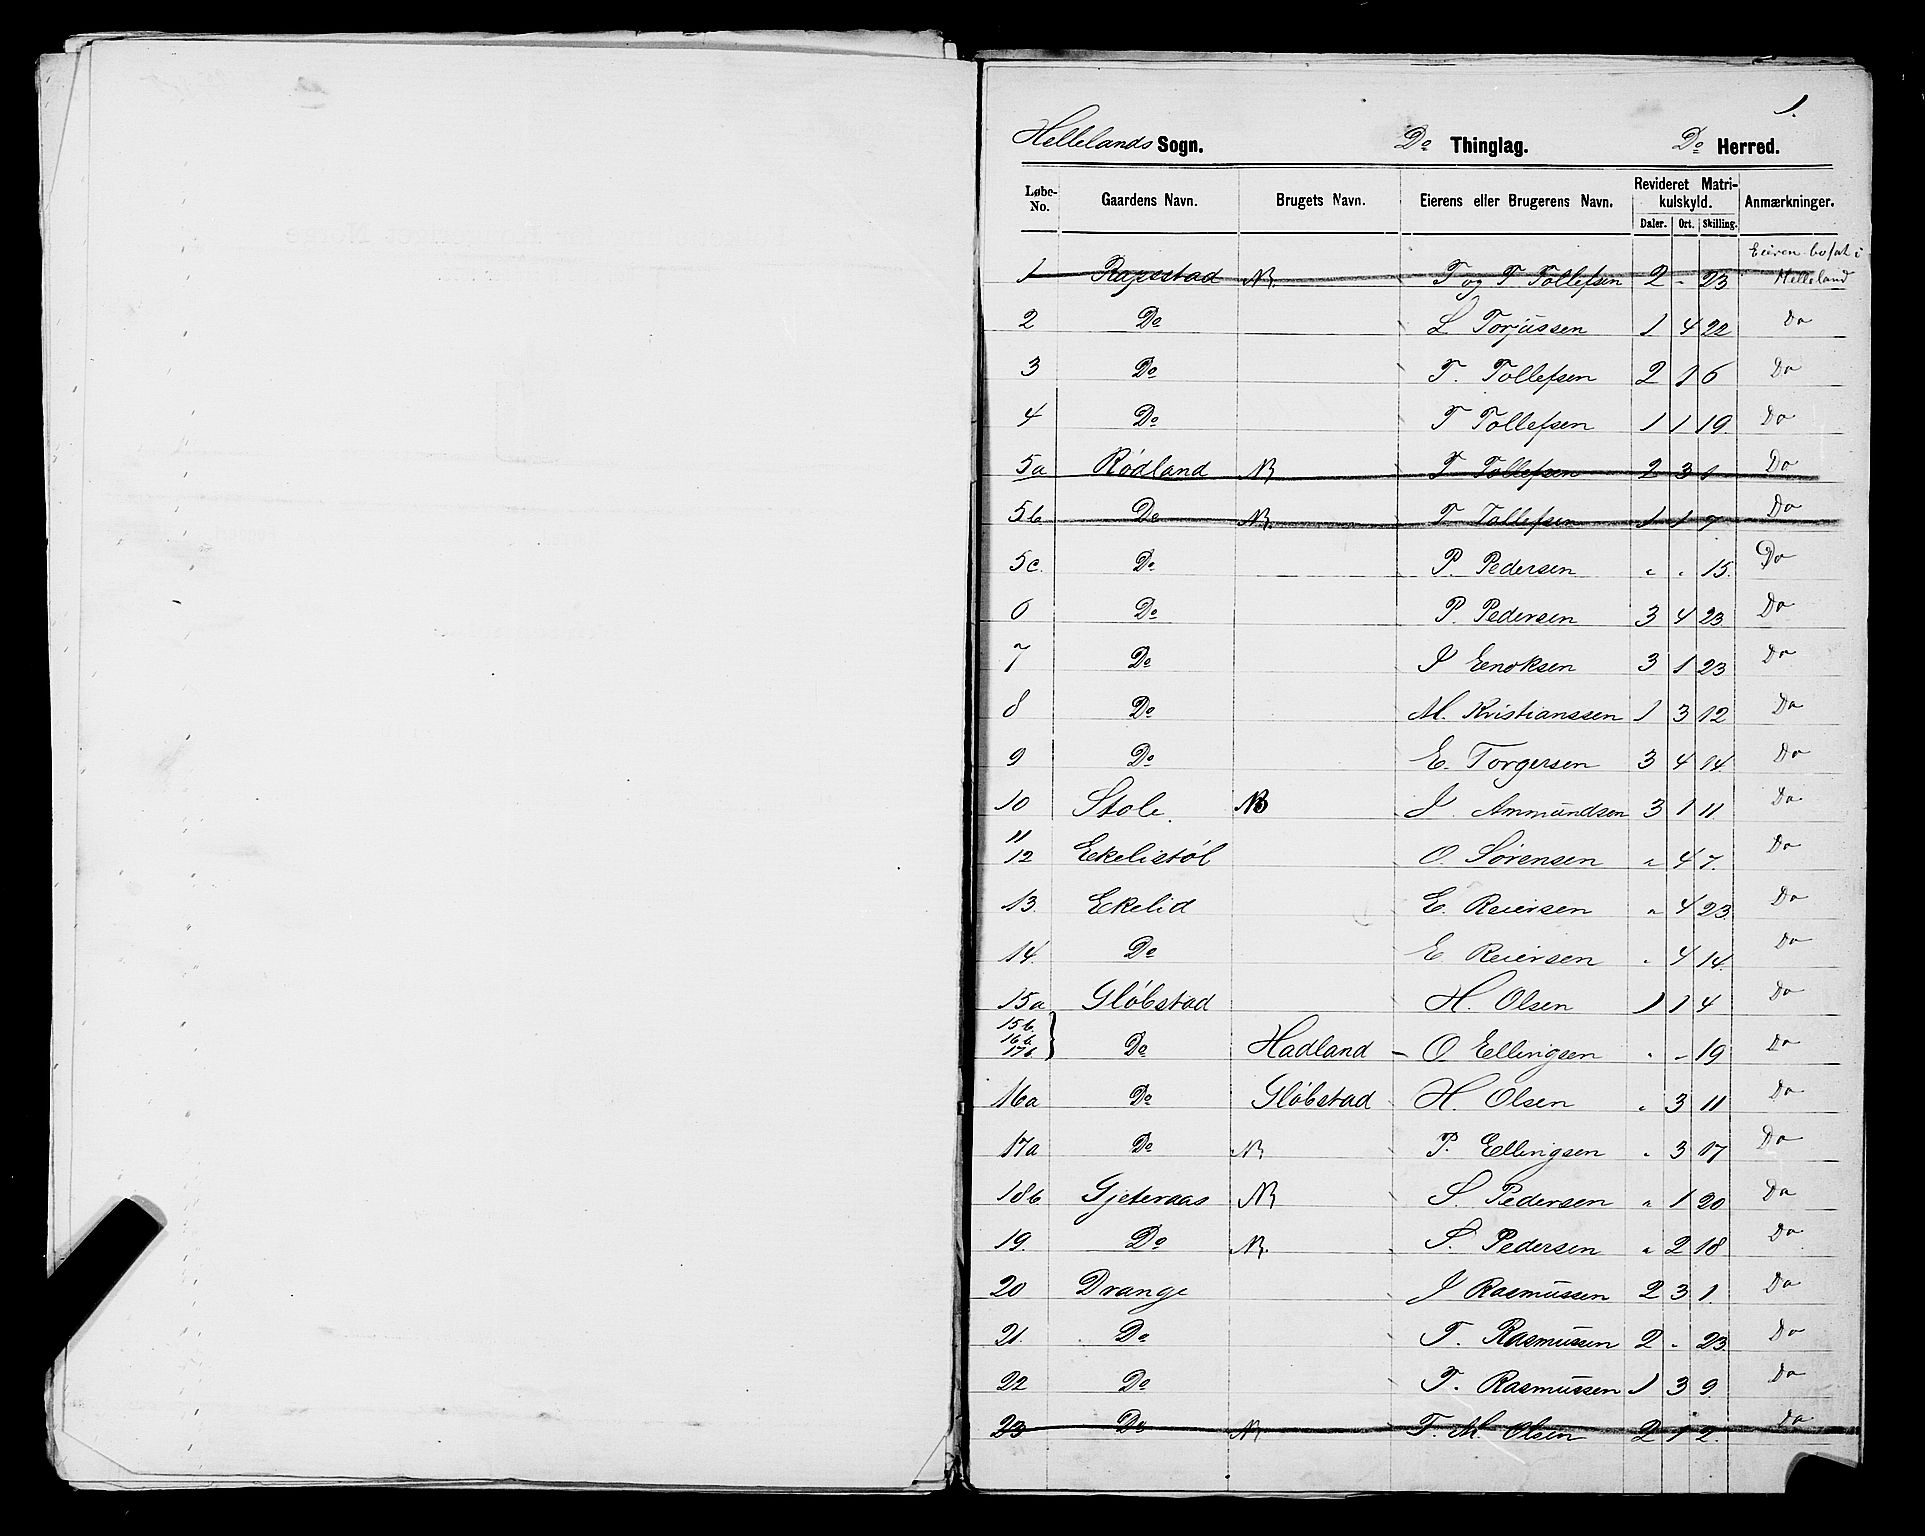 1.
Hellelands Sogn. Do Thinglag. Do Herred.
Løbe-No. Gaardens Navn. Brugets Navn. Eierens eller Brugerens Navn. Revideret Matrikulskyld. Anmærkninger.
Daler. Ort. Skilling.
Eieren bosat i
1 Rapstad NB T og T Tollefsen 2 - 23 Helleland
2 Do L Torjussen 1 4 22 Do
3 Do T. Tollefsen 2 1 6 Do
4 Do T Tollefsen 1 1 19. Do
5a Rødland NB T Tollefsen 2 3 1 Do
5b Do NB. T Tollefsen 1 1 7 Do
5c. Do P. Pedersen " " 15. Do
6 Do P. Pedersen 3 4 23 Do
7 Do I Enoksen 3 1 23 Do
8 Do M. Kristianssen 1 3 12 Do
9 Do E. Torgersen 3 4 14 Do
10 Stole. NB I. Ammundsen 3 1 11 Do
11
12 Ekelistøl O. Sørensen " 4 7. Do
13. Ekelid E. Reiersen " 4 23. Do
14. Do E. Reiersen " 4 14. Do
15a Gløbstad H. Olsen 1 1 4 Do
15b.
16b.
17b } Do Hadland - O Ellingsen " - 19 Do
16a Do Gløbstad H. Olsen " 3 11 Do
17a Do NB P. Ellingsen " 3 17 Do
18b Gjeteraas NB S. Pedersen " 1 20 Do
19. Do NB. S. Pedersen " 2 18 Do
20 Drange I Rasmussen 2 3 1. Do
21. Do T. Rasmussen 2 - 23 Do
22 Do T. Rasmussen 1 3 9 Do
23 Do NB T. M. Olsen 2 1 2. Do